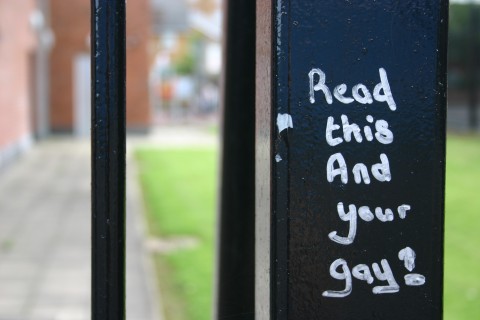 Read
this
And
your
gay!